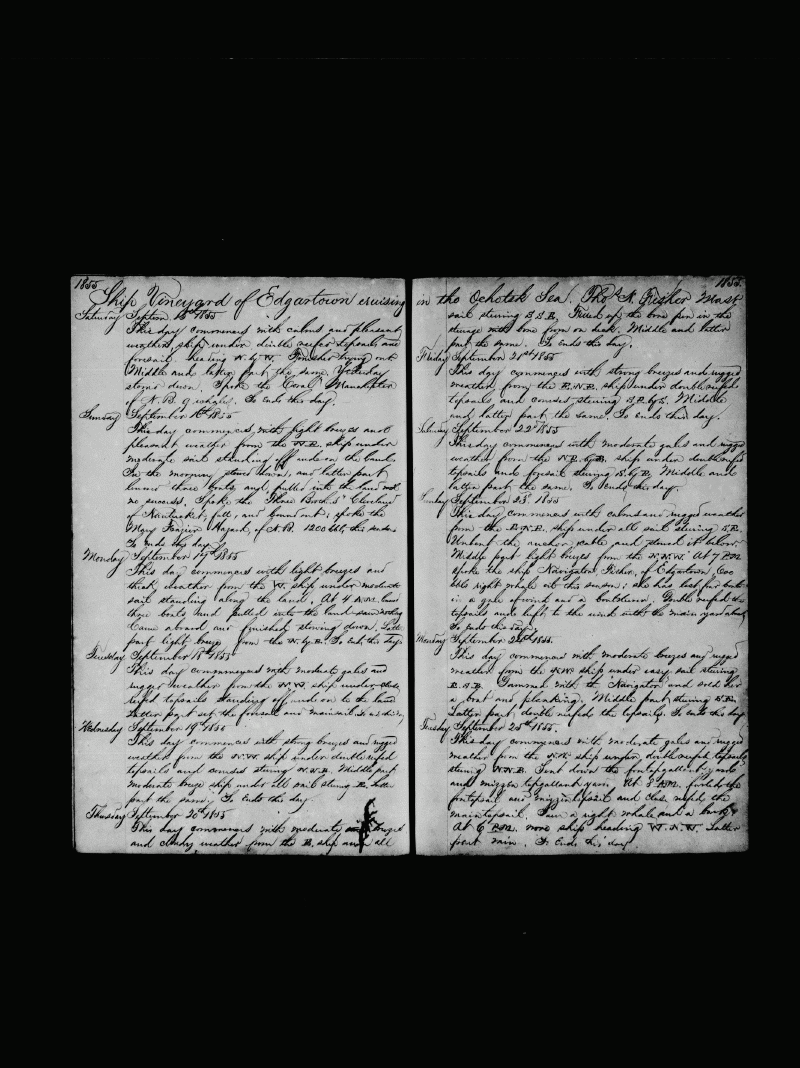 1855
Ship Vineyard of Edgartown cruising
Saturday Septem 15th 1855
This day commences with calms and pleasant
weather, ship under double reefed topsails and
foresail heading N. by W. Finished trying out
Middle and latter part the same. Yesterday
stowed down. Spoke the Manchester
of N. B. 9 whales. So ends this day.
Sunday September 16th 1855
This day commences with light breezes and
pleasant weather from the ship under
moderate sail standing off and on the land.
In the morning stowed down, and latter part
lowered three boats and pulled into the land with
no success. Spoke the Three Brothers Cleveland
of Nantucket, full, and bound out; spoke the
Mary Frazier Hazard, of N. B. 1200 bbls, this season
So ends this day.
Monday September 17th 1855
This day commences with light breezes and
thick weather from the W. ship under moderate
sail standing along the land. At 4 A.M. lowered
three boats and pulled into the land saw nothing
Came aboard and finished stowing down. Latter
part light breeze from the N. by E. So ends this day.
Tuesday September 18th 1855
This day commences with moderate gales and
rugged weather from the N.W. ship under close
reefed topsails standing off and on to the land
Latter part set the foresail and mainsail. So ends this day
Wednesday September 19th 1855
This day commences with strong breezes and rugged
weather from the N.W. ship under double reefed
topsails and courses steering Middle part
moderate breeze ship under all sail steering E. latter
part the same. So ends this day.
Thursday September 20th 1855
This day commences with moderate breezes
and cloudy weather from the ship under all
1855
in the Ochotsk Sea. Thos. N. Fisher Mast
sail steering Fixed up the bone pen in the
steerage with bone from on deck. Middle and latter
part the same. So ends this day.
Friday September 21st 1855
This day commences with strong breezes and rugged
weather from the E.N.E. ship under double reefed
topsails and courses steering Middle
and latter part the same. So ends this day.
Saturday September 22d 1855
This day commences with moderate gales and rugged
weather from the N.E. by E. ship under double reefed
topsails and foresail steering Middle and
latter part the same. So ends this day.
Sunday September 23d 1855
This day commences with calms and rugged weather
from the E.N.E. ship under all sail steering
Unbent the anchor cable and stowed it below.
Middle part light breezes from the N.N.W. At 7 P.M.
spoke the ship Navigator Fisher, of Edgartown, 600
bbls right whale oil this season; she has lost four boats
in a gale of wind and a boatsteerer. Double reefed the
topsails and luff to the wind with the main yard aback
So ends this day.
Monday September 24th 1855.
This day commences with moderate breezes and rugged
weather from the ship under easy sail steering
E.S.E. Gammed with the "Navigator" and sold her
a boat and planking. Middle part steering
Latter part double reefed the topsails. So ends this day
Tuesday September 25th 1855.
This day commences with moderate gales and rugged
weather from the ship under double reefed topsails
steering Sent down the foretopgallant yards
and mizzen topgallant yard. At 3 A.M. furled the
foretopsail and mizzentopsail and close reefed the
maintopsail. Saw a right whale and a
At 6 P.M. wore ship heading W.N.W. Latter
part rain. So ends this day.